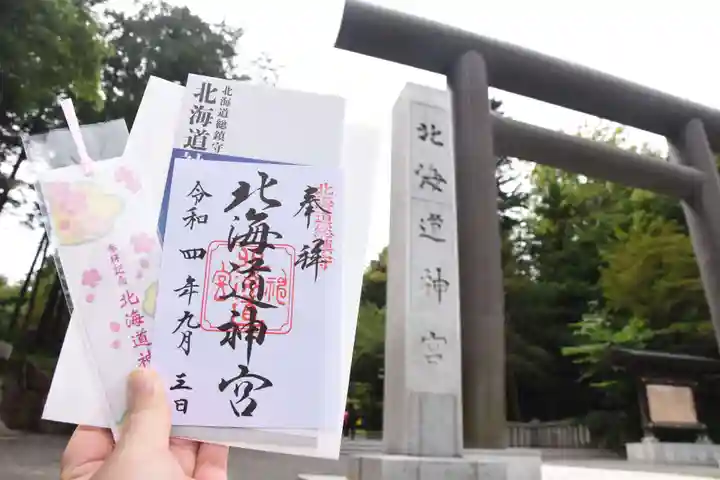 北海道総鎮守
北海道神
奉拝
北海道総鎮守
北海道神宮
令和四年九月三日
参拝記念
北海道神
北海道神宮